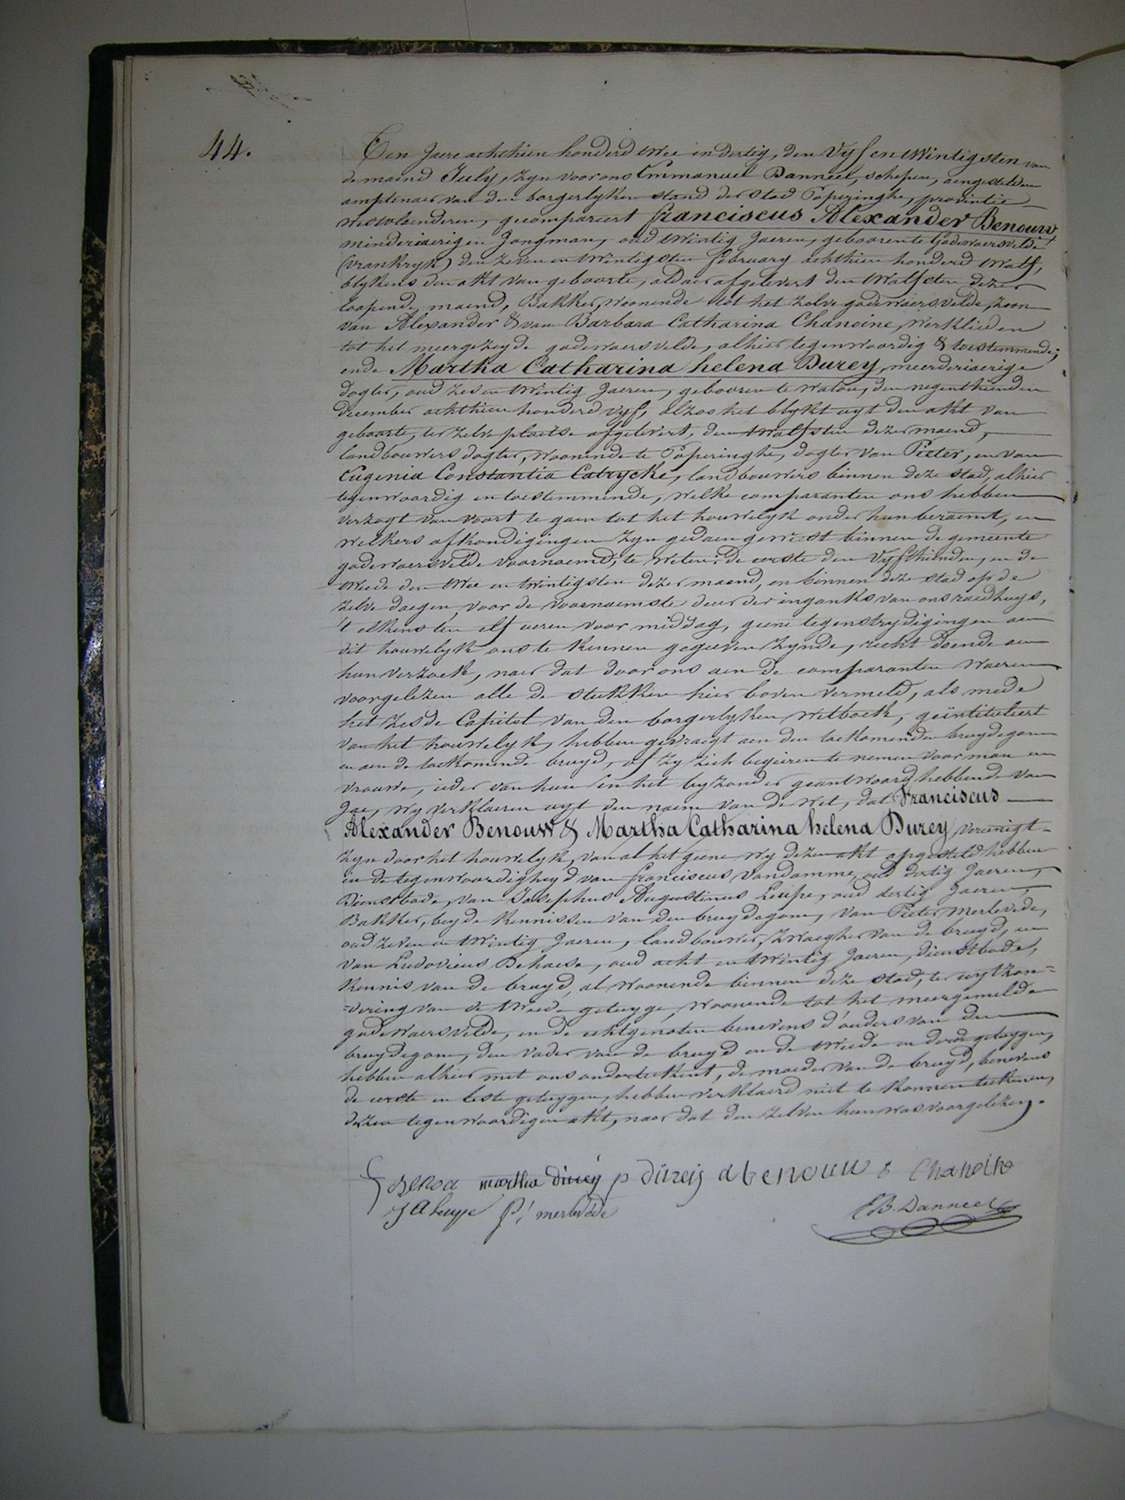 44.
Een Jaere achthien honderd twee en dertig, den vyf en twintigsten van
de maend July, zyn voor ons Emmanuel Danneel, schepen, aengestelden
amptenaer van den borgerlyken stand der stad Poperinghe, provintie
westvlaenderen, gecompareert franciscus Alexander Benouw
minderjaerigen Jongman, oud twintig Jaeren, gebooren te Godewaersvelde
(vrankryk) den zeven en twintigsten february achthien honderd twalf,
blykens den akt van geboorte, aldaer afgelevert den twalfsten dezer
loopende maend, Bakker, woonende tot het zelve godewaersvelde, zoon
van Alexander & van Barbara Catharina Chanoine, werklieden
tot het meergezeyde godewaersvelde, alhier tegenwoordig & toestemmende;
ende Martha Catharina helena Durey, meerderjaerige
dogter, oud zes en twintig Jaeren, gebooren te watou, den negenthienden
december achthien honderd vyf, alzoo het blykt uyt den akt van
geboorte, ter zelve plaetse afgelevert, den twalfsten dezer maend,
landbouwers dogter, woonende te Poperinghe, dogter van Pieter, en van
Eugenia Constantia Catrycke, landbouwers binnen deze stad, alhier
tegenwoordig en toestemmende, welke comparanten ons hebben
verzogt van voort te gaen tot het houwelyk onder hun beraemt, en
welkers afkondigingen zyn gedaen geweest binnen de gemeente
godewaersvelde voornoemd, te weten: de eerste den vyfthienden, en de
tweede den twee en twintigsten dezer maend, en binnen deze stad op de
zelve daegen, voor de voornaemste deur der inganks van ons raedhuys,
't elkens ten elf ueren voor middag, geene tegenstrydigingen aen
dit houwelyk ons te kennen gegeven zynde, recht doende aen
hun verzoek, naer dat door ons aen de comparanten waeren
voorgelezen alle de stukken hier boven vermeld, als mede
het zesde Capitel van den borgerlyken wetboek, geïntituleert
van het houwelyk, hebben gevraegt aen den toekomenden bruydegom
en aen de toekomende bruyd, of zy zich begeeren te nemen voor man en
vrouwe, ieder van hun in het byzonder geantwoord hebbende van
Jae, wy verklaeren uyt den naem van de wet, dat Franciscus
Alexander Benouw & Martha Catharina helena Durey, vereenigt
zyn door het houwelyk, van al het geene wy dezen akt opgesteld hebben
in de tegenwoordigheyd van franciscus Vandamme, oud dertig Jaeren,
Dienstbode, van Josephus Augustinus Leupe, oud dertig Jaeren,
Bakker, beyde kennissen van den bruydegom, van Pieter Merlevede,
oud zeven en twintig Jaeren, landbouwer, zwaegher van de bruyd, en
van Ludovicus Dehaese, oud acht en twintig Jaeren, dienstbode,
kennis van de bruyd, al woonende binnen deze stad, ter uytzon=
=dering van de tweede getuyge, woonende tot het meergemelde
godewaersvelde, en de echtgenoten benevens d'ouders van den
bruydegom, den vader van de bruyd en de tweede en derde getuygen,
hebben alhier met ons onderteekent, de moeder van de bruyd, benevens
de eerste en leste getuygen, hebben verklaerd niet te konnen teekenen,
dezen tegenwoordigen akt, naer dat den zelven hun was voorgelezen.
martha dureÿ p dureij a benouw b Chanoine
J A leupe P. merlevede E B. Danneel